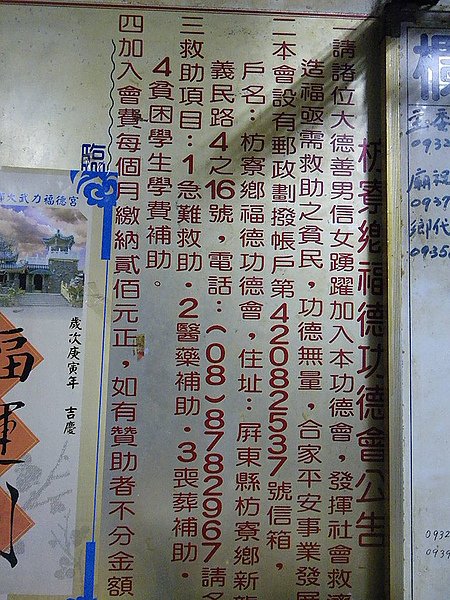 枋寮鄉福德功德會公告
一請諸位大德善男信女踴躍加入本功德會，發揮社會救濟
造福亟需救助之貧民，功德無量，合家平安事業發展
二本會設有郵政劃撥帳戶第42082537號信箱，
戶名：枋寮鄉福德功德會，住址：屏東縣枋寮鄉新龍
義民路4之16號，電話：(08)8782967請多
三救助項目：1急難救助．2醫藥補助．3喪葬補助．
4貧困學生學費補助。
四加入會費每個月繳納貳佰元正，如有贊助者不分金額
臨
武力福德宮
歲次庚寅年 吉慶
福運
0932
廟祝
0937
鄉代
0935
0932
0939